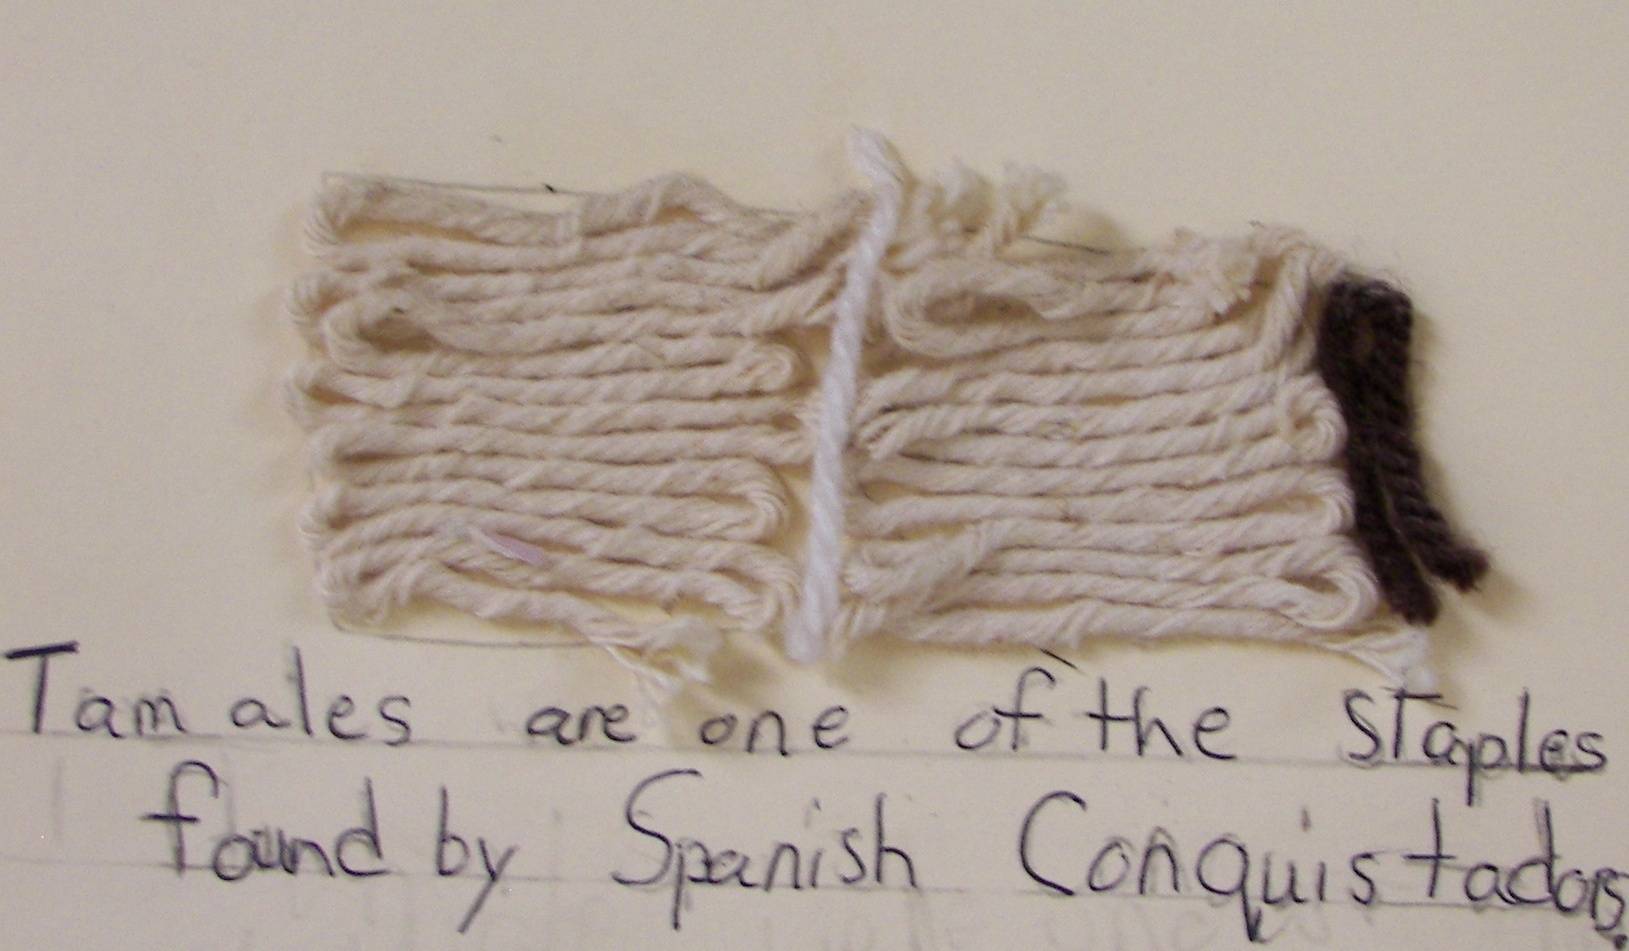 Tamales are one of the staples
found by Spanish Conquistadors.